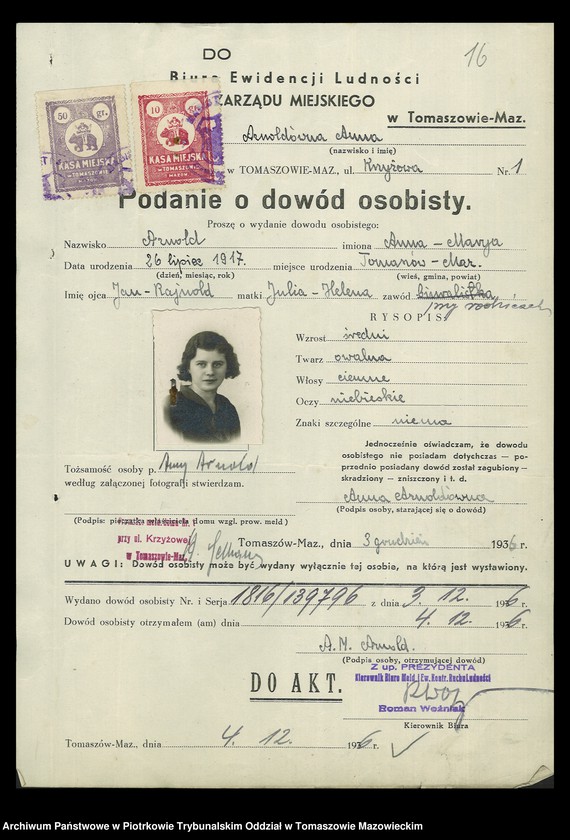 16
DO
Biura Ewidencji Ludności
ZARZĄDU MIEJSKIEGO
w Tomaszowie-Maz.
50 gr.
KASA MIEJSKA
w TOMASZOWIE
MAZOW.
10 gr.
KASA MIEJSKA
w TOMASZOWIE
MAZOW.
Arnoldówna Anna
(nazwisko i imię)
w TOMASZOWIE-MAZ., ul. Krzyżowa Nr. 1
Podanie o dowód osobisty.
Proszę o wydanie dowodu osobistego:
Nazwisko Arnold imiona Anna-Marja
Data urodzenia 26 lipiec 1917. miejsce urodzenia Tomaszów-Maz.
(dzień, miesiąc, rok) (wieś, gmina, powiat)
Imię ojca Jan-Rajnold matki Julia-Helena zawód
przy rodzicach
RYSOPIS
Wzrost średni
Twarz owalna
Włosy ciemne
Oczy niebieskie
Znaki szczególne niema
Jednocześnie oświadczam, że dowodu
osobistego nie posiadam dotychczas — po-
przednio posiadany dowód został zagubiony —
skradziony — zniszczony i t. d.
Tożsamość osoby p. Anny Arnold
według załączonej fotografji stwierdzam.
Anna Arnoldówna
(Podpis osoby, starającej się o dowód)
(Podpis: pieczątka właściciela domu wzgl. prow. meld)
przy ul. Krzyżowej
w Tomaszowie-Maz.
Tomaszów-Maz., dnia 3 grudzień 1936 r.
UWAGI: Dowód osobisty może być wydany wyłącznie tej osobie, na którą jest wystawiony.
Wydano dowód osobisty Nr. i Serja 1816/139796 z dnia 3. 12. 1936 r.
Dowód osobisty otrzymałem (am) dnia 4. 12. 1936 r.
A. M. Arnold.
(Podpis osoby, otrzymującej dowód)
DO AKT.
Z up. PREZYDENTA
Kierownik Biura Meld. i Ew. Kontr. Ruchu Ludności
Roman Woźniak
Kierownik Biura
Tomaszów-Maz., dnia 4. 12. 1936 r.
Archiwum Państwowe w Piotrkowie Trybunalskim Oddział w Tomaszowie Mazowieckim